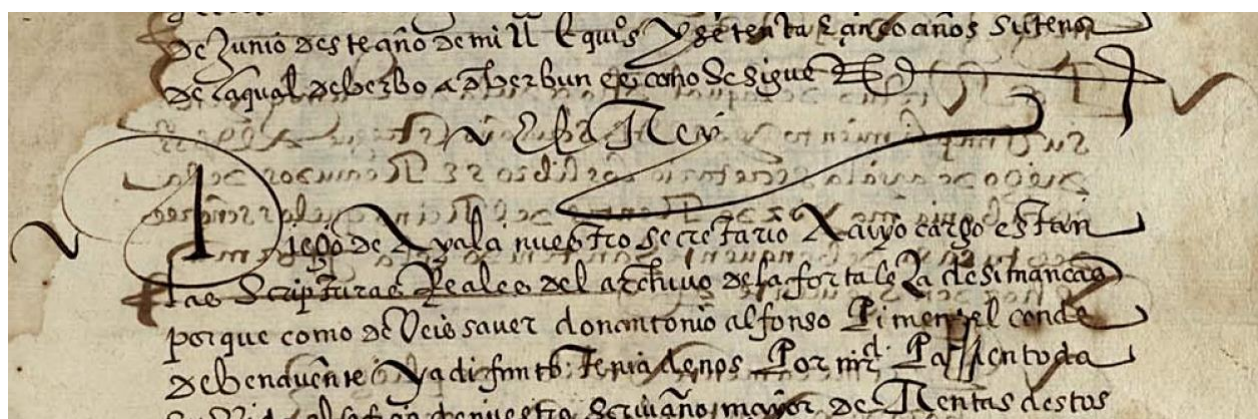 de Junio deste año de mill E quis Y setenta E cinco años su tenor
de la qual de berbo a d berbun es como se sigue
El Rey
Diego de Ayala nuestro secretario A cuyo cargo estan
las Scripturas Reales del archivo de la fortaleza de simancas
porque como deveis saver don antonio alfonso Pimentel conde
de benavente ya difunto tenia de nos Por mrd. Para en toda
su vida al escribano mayor de Rentas destos